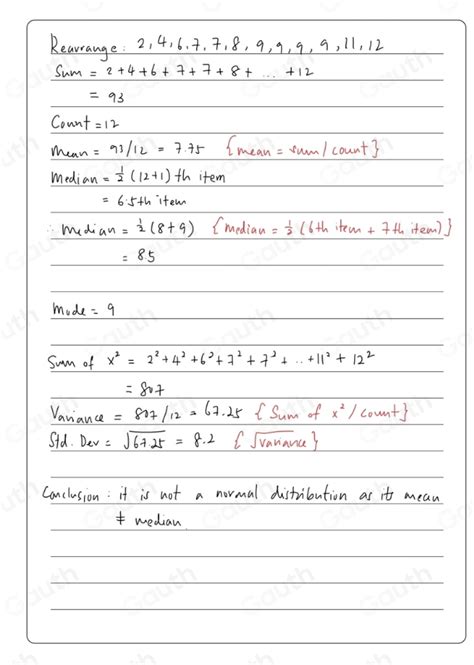 Rearrange: 2, 4, 6, 7, 7, 8, 9, 9, 9, 9, 11, 12
Sum = 2+4+6+7+7+8+ ... +12
= 93
Count = 12
Mean = 93/12 = 7.75 {mean = sum/count}
Median = 1/2 (12+1) th item
= 6.5th item
∴ median = 1/2 (8+9) {median = 1/2 (6th item + 7th item)}
= 85
Mode = 9
Sum of x² = 2²+4²+6²+7²+7²+ .. +11²+12²
= 807
Variance = 807/12 = 67.25 {Sum of x²/count}
Std. Dev = √67.25 = 8.2 {√variance}
Conclusion: it is not a normal distribution as its mean
≠ median